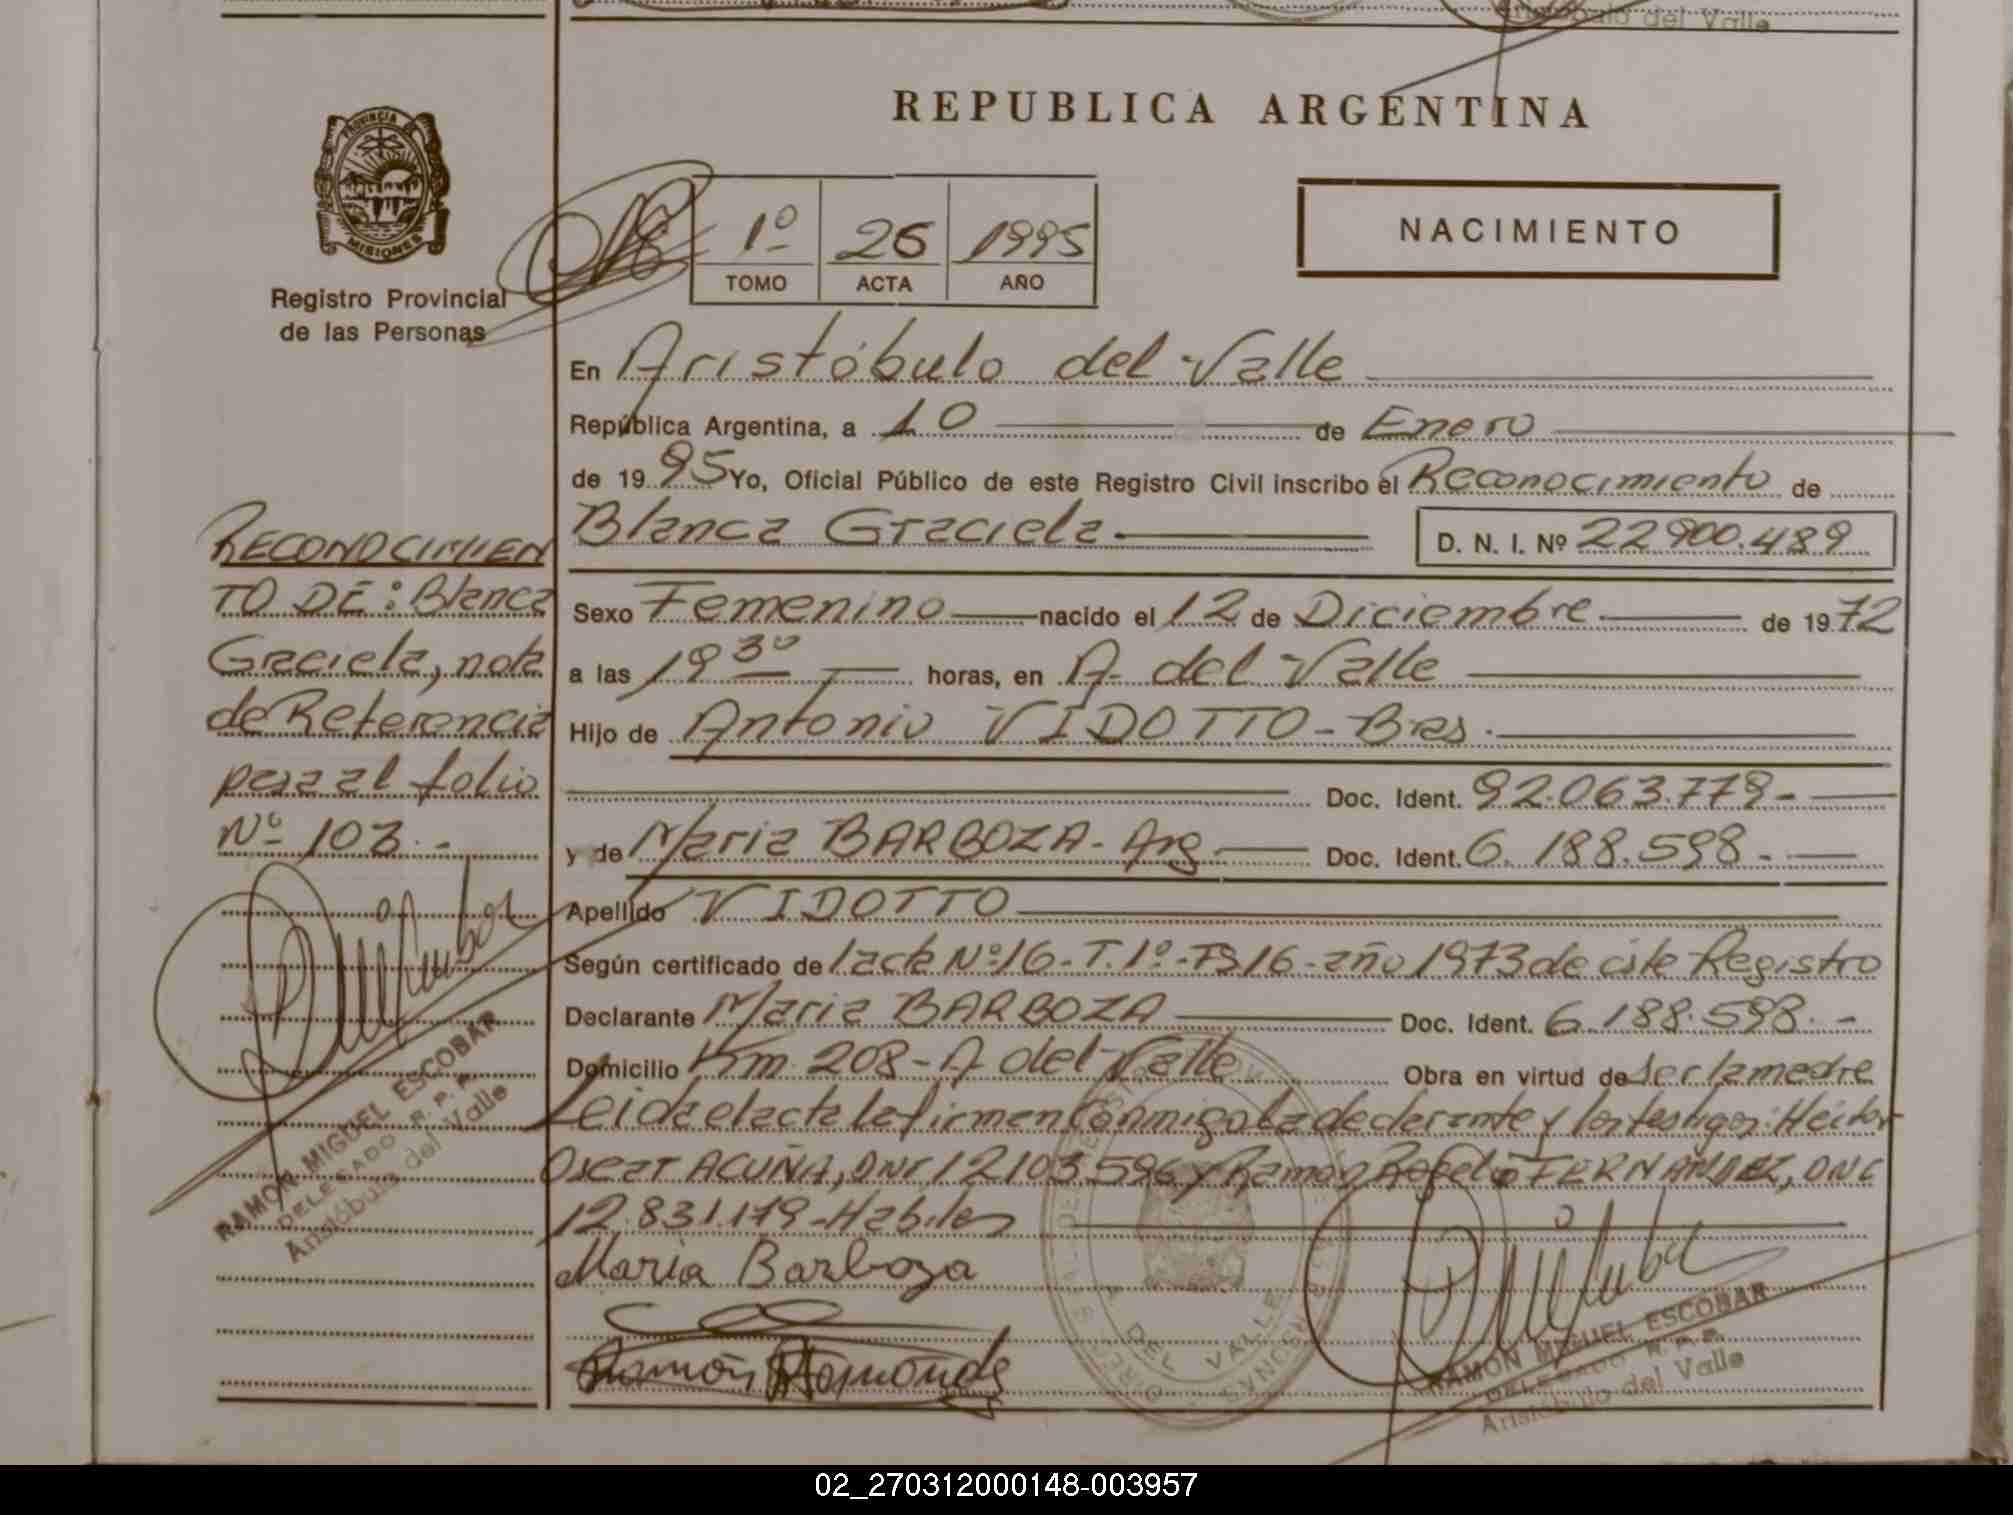 Aristóbulo del Valle
REPUBLICA ARGENTINA
PROVINCIA DE
MISIONES
Registro Provincial
de las Personas
1º 26 1995
TOMO ACTA AÑO
NACIMIENTO
En Aristóbulo del Valle
República Argentina, a 10 de Enero
de 1995 Yo, Oficial Público de este Registro Civil inscribo el Reconocimiento de
Blanca Graciela D. N. I. Nº 22900.489
Sexo Femenino nacido el 12 de Diciembre de 1972
a las 19 30 horas, en A. del Valle
Hijo de Antonio VIDOTTO - Bras.
Doc. Ident. 92.063.778-
y de Maria BARBOZA - Arg. Doc. Ident. 6.188.598-
Apellido VIDOTTO
Según certificado de / acta Nº 16 - T. 1º - Fº 16 - año 1973 de éste Registro
Declarante Maria BARBOZA Doc. Ident. 6.188.598.-
Domicilio Km 208 - A del Valle Obra en virtud de ser la madre
Leida el acta la firman conmigo la declarante y los testigos: Héctor
Oscar ACUÑA, DNI 12.103.596 y Ramon Rogelio FERNANDEZ, DNI
12.831.179 - Habiles
Maria Barboza
Ramón
RAMON MIGUEL ESCOBAR
DELEGADO R. P. P.
Aristóbulo del Valle
DEL VALLE
RECONOCIMIEN
TO DE: Blanca
Graciela, nota
de Referencia
para el folio
Nº 103.-
RAMON MIGUEL ESCOBAR
DELEGADO R. P. P.
Aristóbulo del Valle
02_270312000148-003957